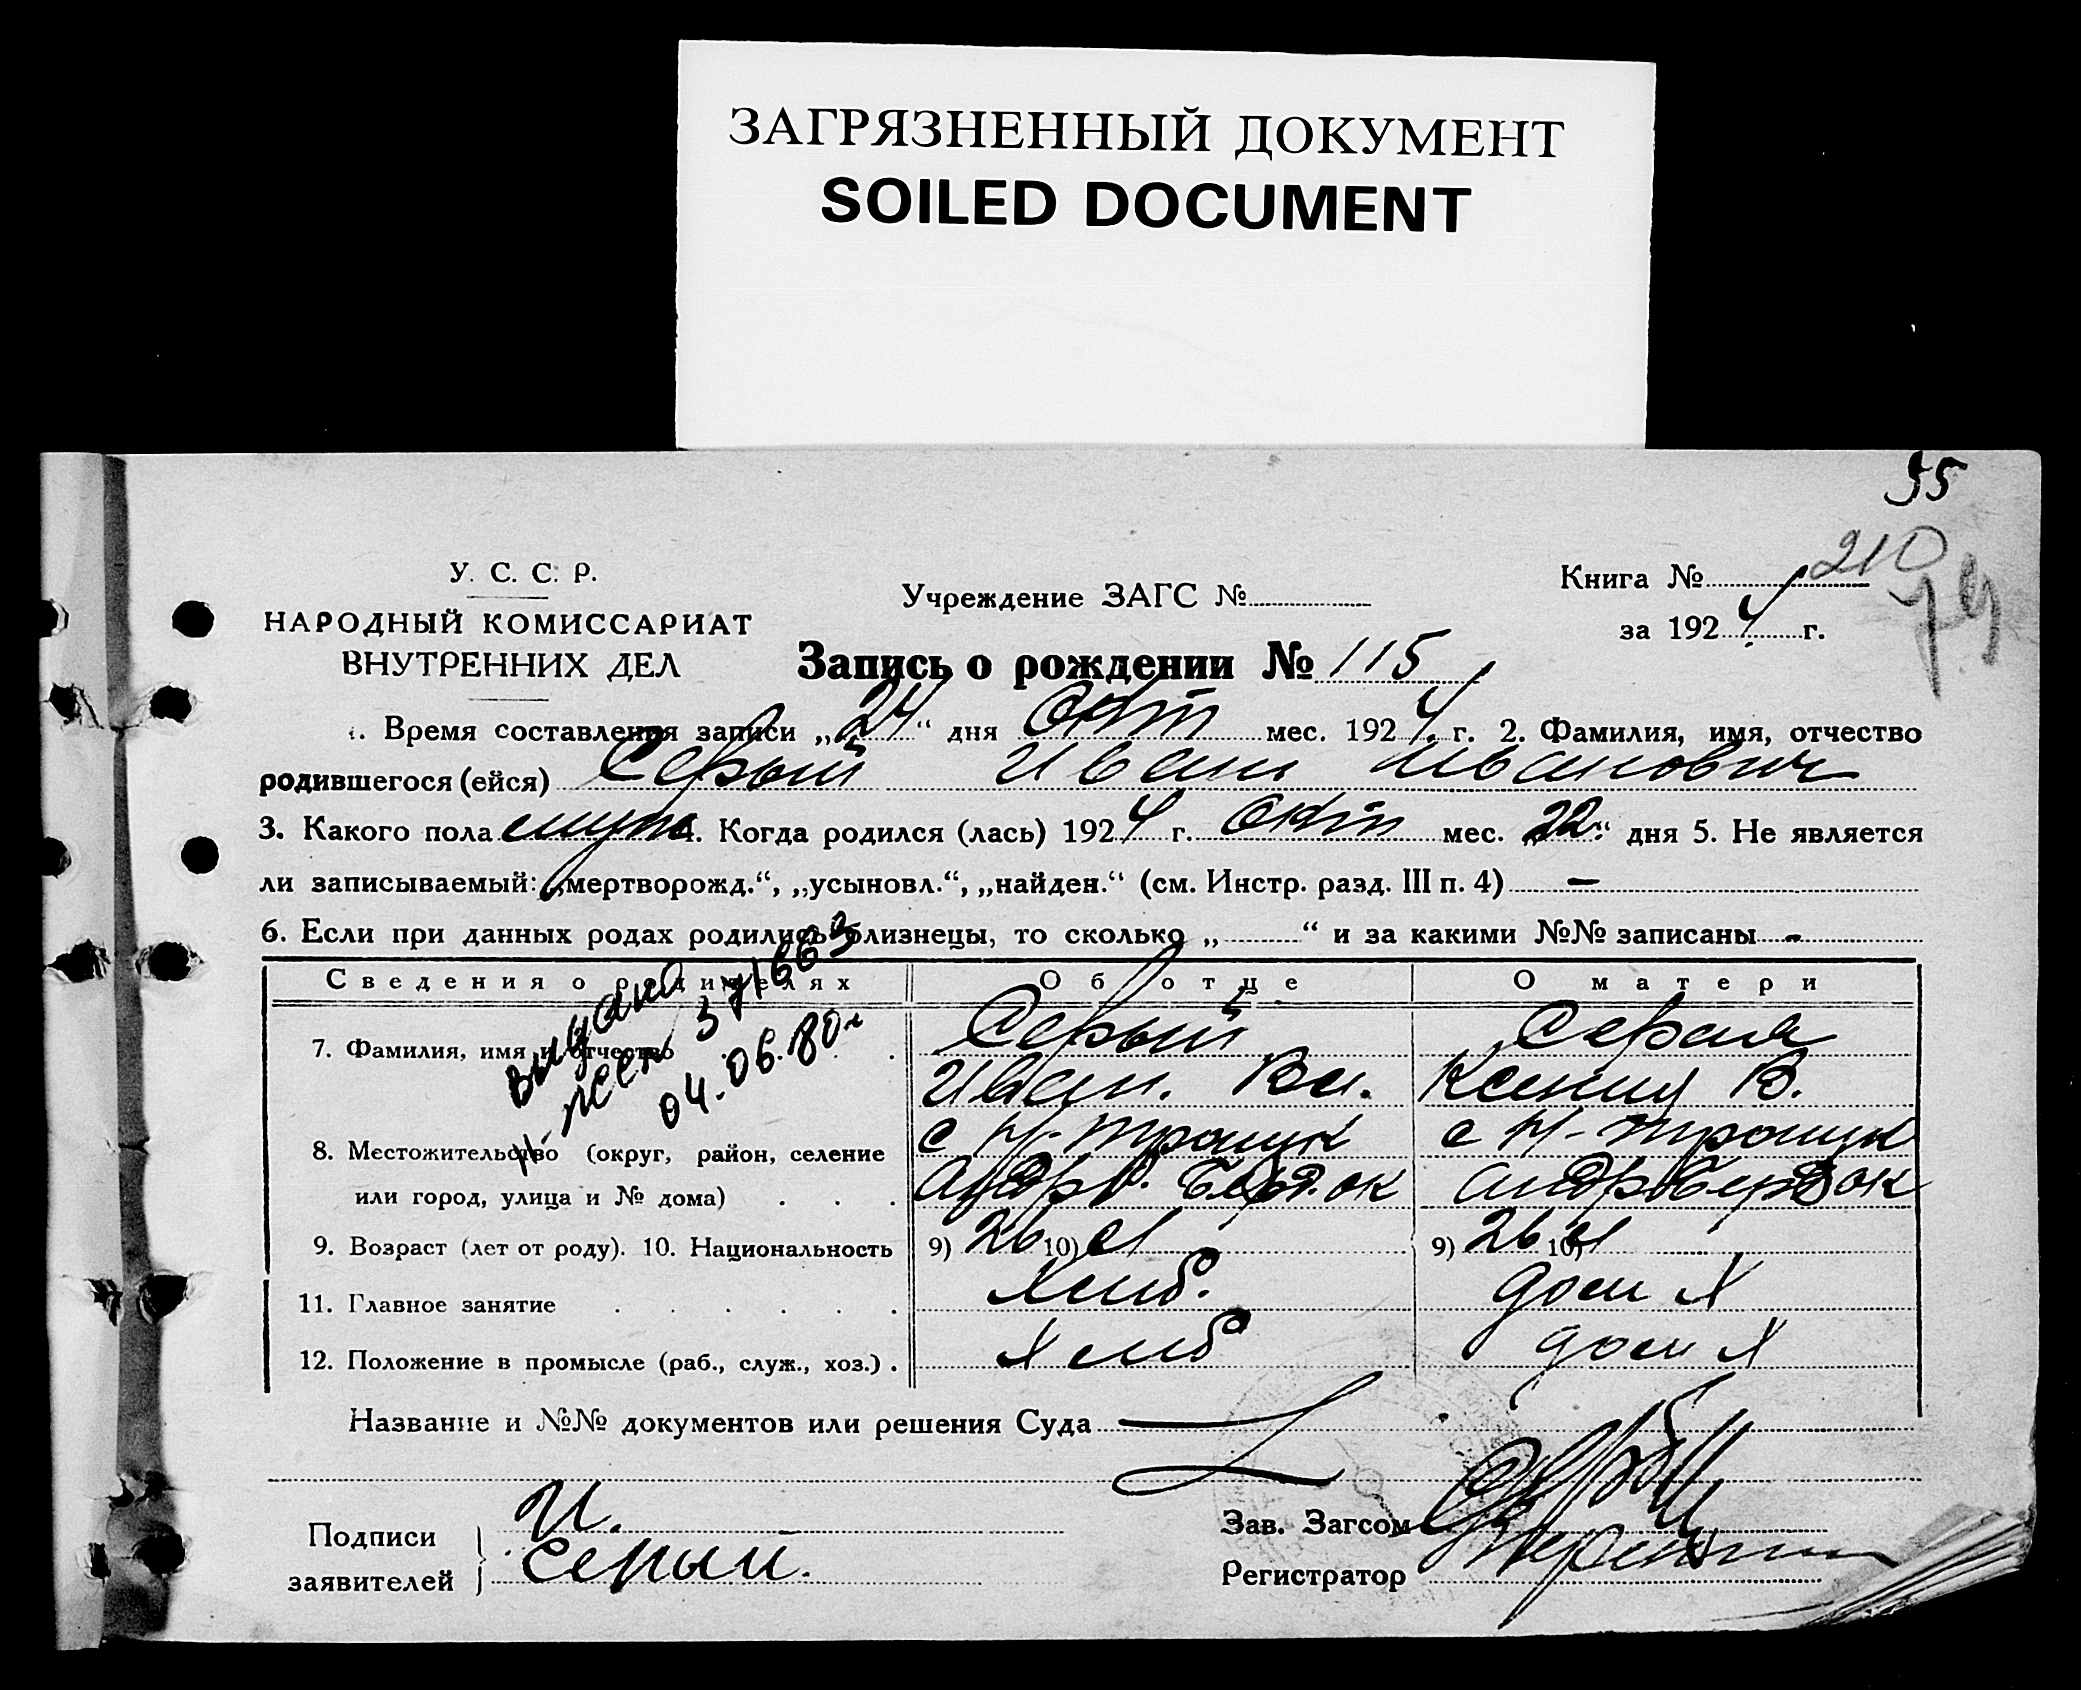 ЗАГРЯЗНЕННЫЙ ДОКУМЕНТ
SOILED DOCUMENT
55
У. С. С. Р.
НАРОДНЫЙ КОМИССАРИАТ
ВНУТРЕННИХ ДЕЛ
Учреждение ЗАГС №
Книга № 210
за 1924 г.
Запись о рождении № 115
1. Время составления записи „24“ дня Окт мес. 1924 г. 2. Фамилия, имя, отчество
родившегося (ейся) Серый Иван Иванович
3. Какого пола муж 4. Когда родился (лась) 1924 г. Окт мес. „22“ дня 5. Не является
ли записываемый: „мертворожд.“, „усыновл.“, „найден.“ (см. Инстр. разд. III п. 4) —
6. Если при данных родах родились близнецы, то сколько „ “ и за какими №№ записаны -
Сведения о родителях Об отце О матери
7. Фамилия, имя и отчество Серый Серая
Иван. Ва. Ксения В.
8. Местожительство (округ, район, селение с Н- с Н-
или город, улица и № дома) ок ок
9. Возраст (лет от роду). 10. Национальность 9) 26 10) 9) 26 10)
11. Главное занятие Хлиб. дом Х
12. Положение в промысле (раб., служ., хоз.) Хлиб дом Х
выдано
04.06.80
Название и №№ документов или решения Суда
Подписи
заявителей
И.
Серый.
Зав. Загсом
Регистратор